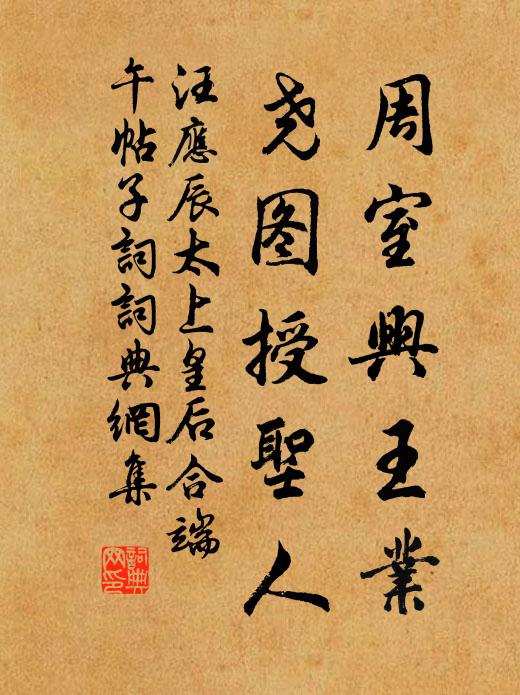 周室興王業
尧图授聖人
汪應辰太上皇后合端
午帖子詞詞典網集
詞典
网印